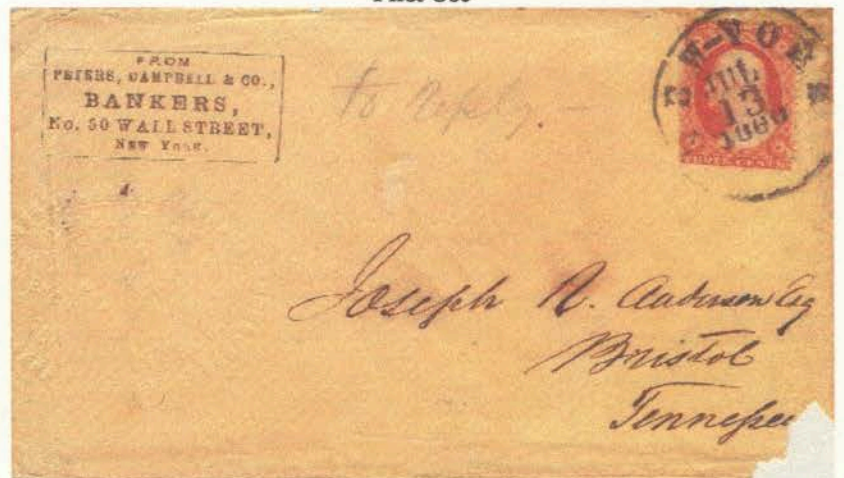 FROM
PETERS, CAMPBELL & CO.,
BANKERS,
No. 50 WALL STREET,
NEW YORK.
To Reply. –
NEW-YORK
JUL
13
1860
THREE CENTS
Joseph R. Anderson Esq
Bristol
Tennessee